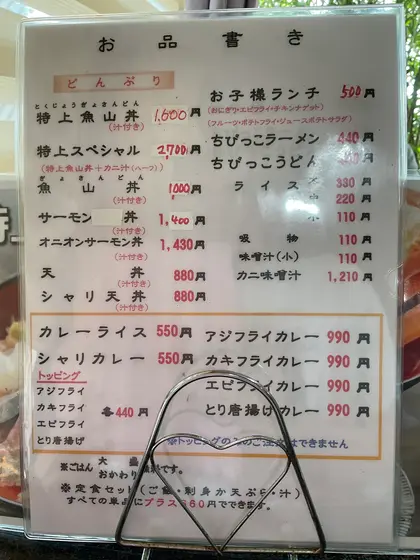 お品書き
どんぶり
とくじょうぎょさんどん
特上魚山丼 1,600円
(汁付き)
特上スペシャル 2,700円
(特上魚山丼+カニ汁(ハーフ))
ぎょさんどん
魚山丼 1,000円
(汁付き)
サーモン 丼 1,400円
(汁付き)
オニオンサーモン丼 1,430円
(汁付き)
天丼 880円
シャリ天丼 880円
お子様ランチ 500円
(おにぎり・エビフライ・チキンナゲット)
(フルーツ・ポテトフライ・ジュースポテトサラダ)
ちびっこラーメン 440円
ちびっこうどん 円
ライス 330円
220円
小 110円
吸物 110円
味噌汁(小) 110円
カニ味噌汁 1,210円
カレーライス 550円
シャリカレー 550円
トッピング
アジフライ
カキフライ 各440円
エビフライ
とり唐揚げ
アジフライカレー 990円
カキフライカレー 990円
エビフライカレー 990円
とり唐揚げカレー 990円
※トッピングのみのご注文はできません
※ごはん 大盛
おかわり 無料です。
※定食セット(ご飯・刺身か天ぷら・汁)
すべての単品にプラス660円でできます。